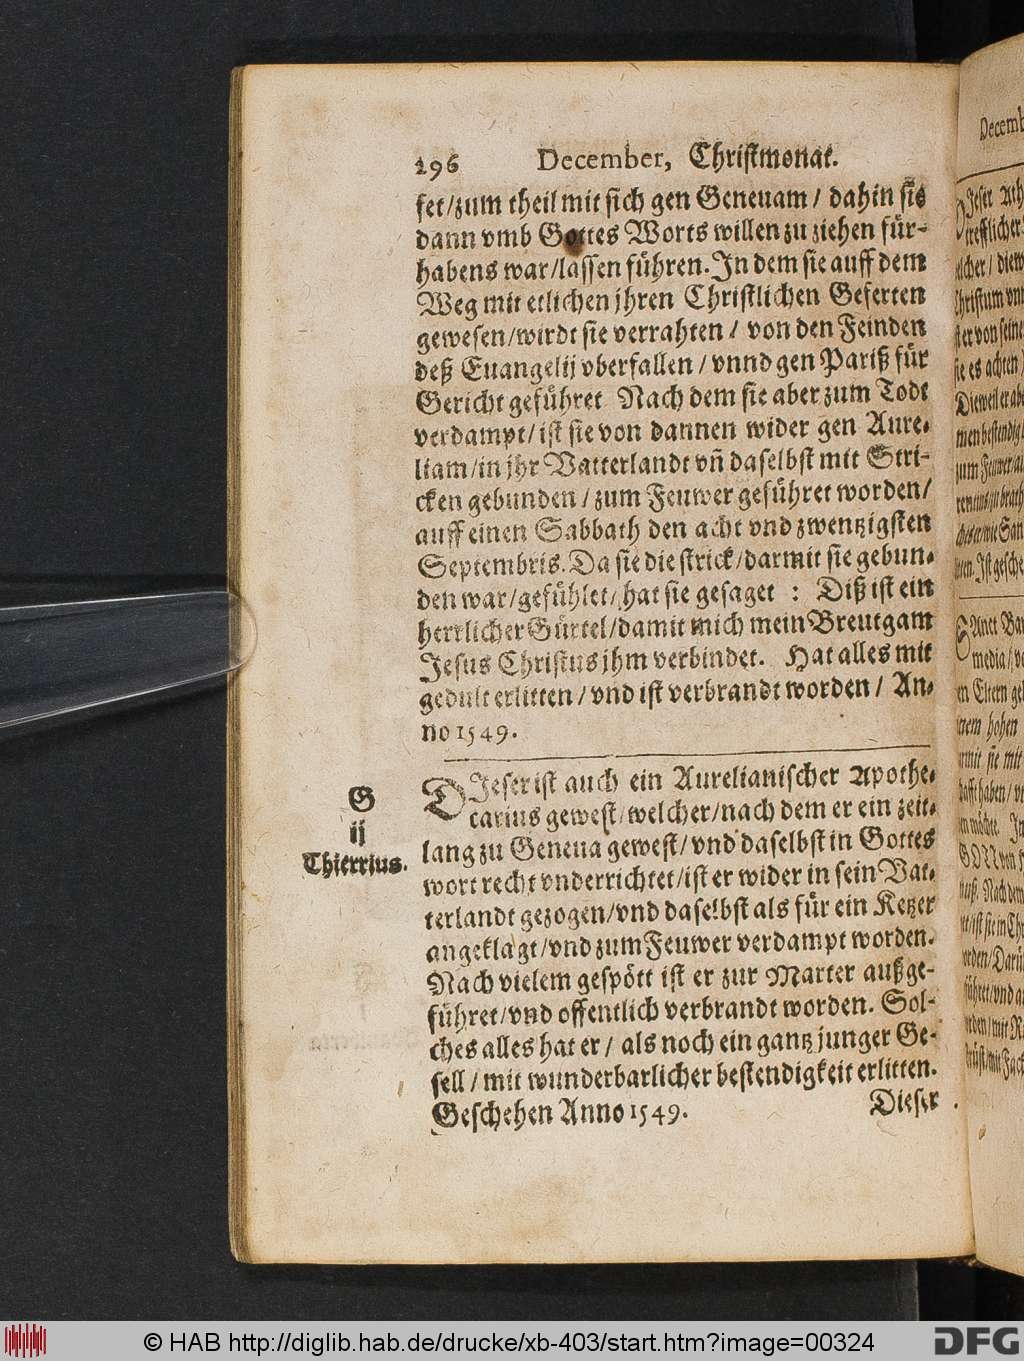 296 December, Christmonat.
set/zum theil mit sich gen Geneuam / dahin sie
dann vmb Gottes Worts willen zu ziehen für-
habens war/lassen führen. In dem sie auff dem
Weg mit etlichen jhren Christlichen Geferten
gewesen/wirdt sie verrahten / von den Feinden
deß Euangelij vberfallen / vnnd gen Pariß für
Gericht geführet Nach dem sie aber zum Todt
verdampt/ist sie von dannen wider gen Aure-
liam/in jhr Vatterlandt vñ daselbst mit Stri-
cken gebunden / zum Feuwer geführet worden/
auff einen Sabbath den acht vnd zwentzigsten
Septembris. Da sie die strick/darmit sie gebun-
den war/gefühlet/hat sie gesaget : Diß ist ein
herrlicher Gürtel/damit mich mein Breutgam
Jesus Christus jhm verbindet. Hat alles mit
gedult erlitten / vnd ist verbrandt worden / An-
no 1549.
G
ij
Thierrius.
DIeser ist auch ein Aurelianischer Apothe-
carius gewest/welcher/nach dem er ein zeit-
lang zu Geneua gewest/vnd daselbst in Gottes
wort recht vnderrichtet/ist er wider in sein Vat-
terlandt gezogen/vnd daselbst als für ein Ketzer
angeklagt/vnd zum Feuwer verdampt worden.
Nach vielem gespött ist er zur Marter außge-
führet/vnd offentlich verbrandt worden. Sol-
ches alles hat er / als noch ein gantz junger Ge-
sell / mit wunderbarlicher bestendigkeit erlitten.
Geschehen Anno 1549. Dieser
© HAB http://diglib.hab.de/drucke/xb-403/start.htm?image=00324
DFG